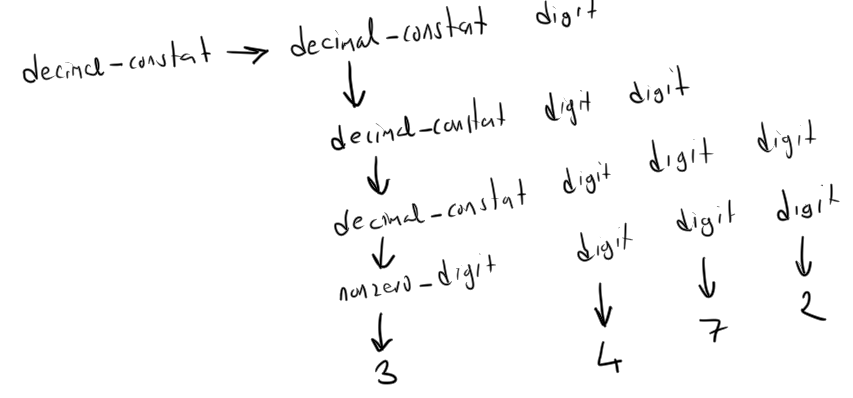 decimal-constat → decimal-constat digit
↓
decimal-constat digit digit
↓
decimal-constat digit digit digit
↓
nonzero_digit digit digit digit
↓ ↓ ↓ ↓
3 4 7 2